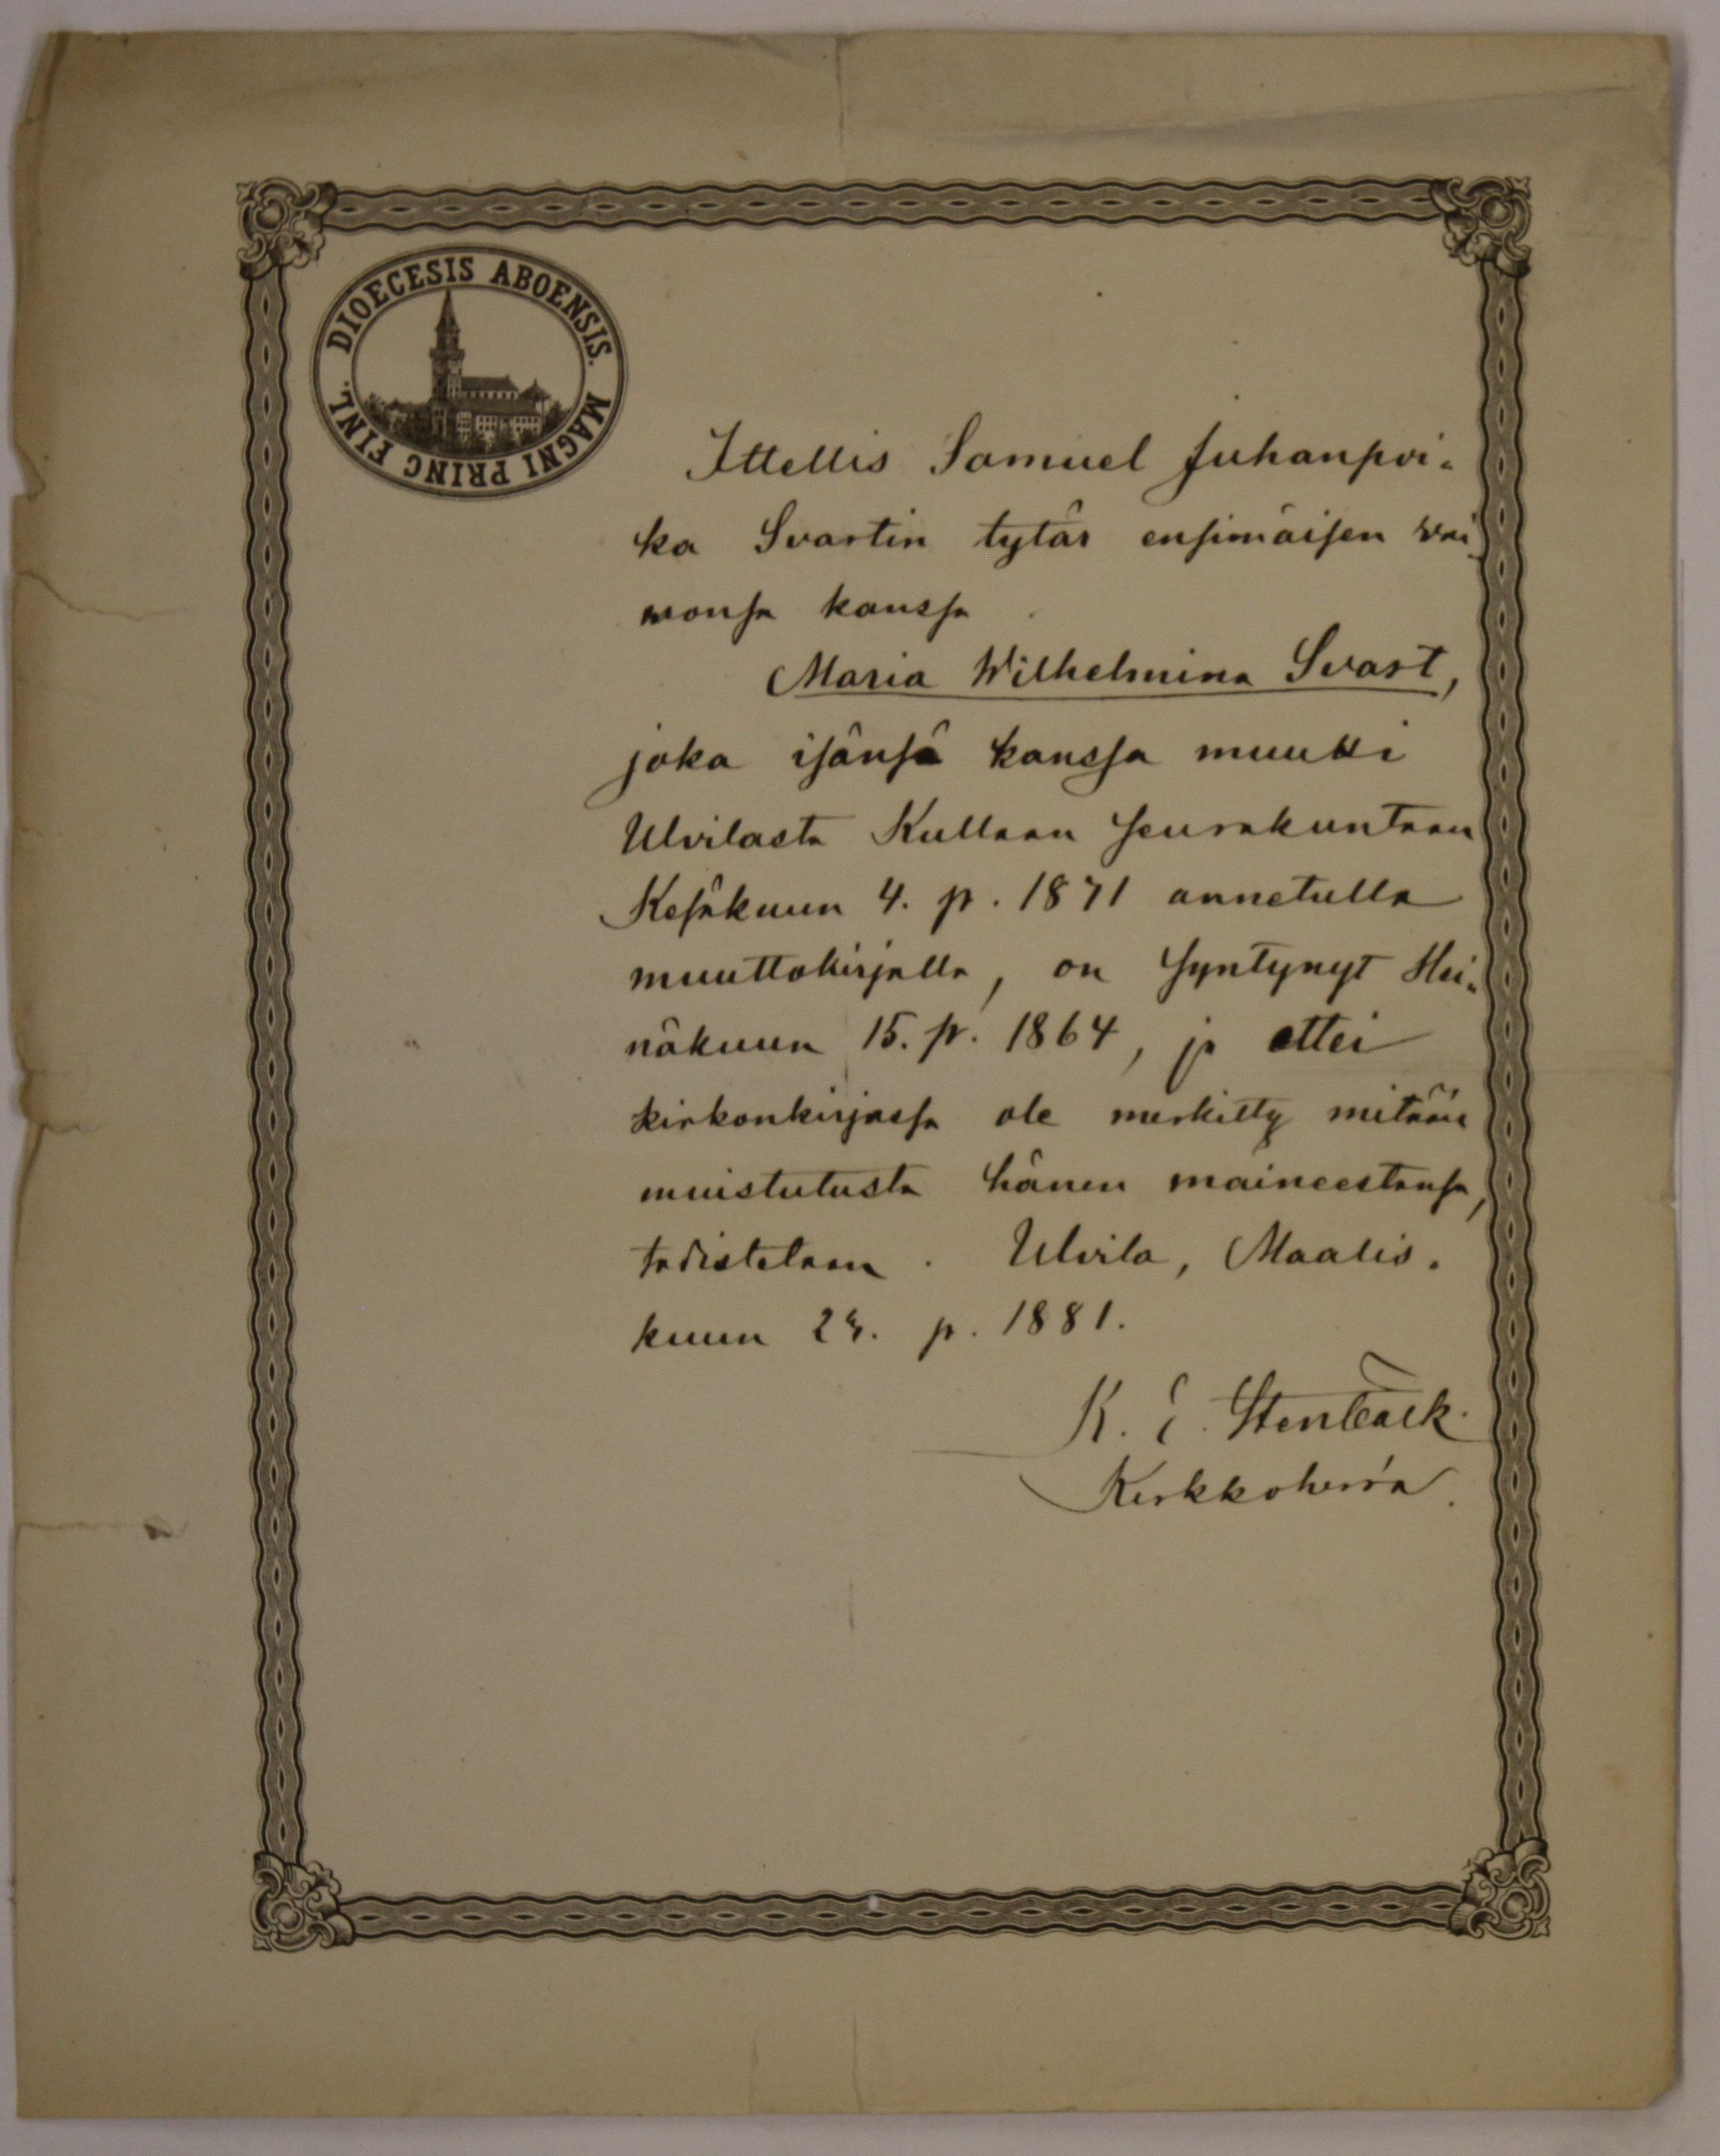 DIOECESIS ABOENSIS. MAGNI PRINC FINL.
Ittellis Samuel Juhanpoi-
ka Svartin tytär ensimäisen vai
monsa kanssa
Maria Wilhelmina Svart,
joka isänsä kanssa muutti
Ulvilasta Kullaan seurakuntaan
Kesäkuun 4. p. 1871 annetulla
muuttokirjalla, on syntynyt Hei-
näkuun 15. p. 1864, ja ettei
kirkonkirjassa ole merkitty mitään
muistutusta hänen maineestansa,
todistetaan. Ulvila, Maalis-
kuun 24. p. 1881.
K. E. Stenbäck.
Kirkkoherra.